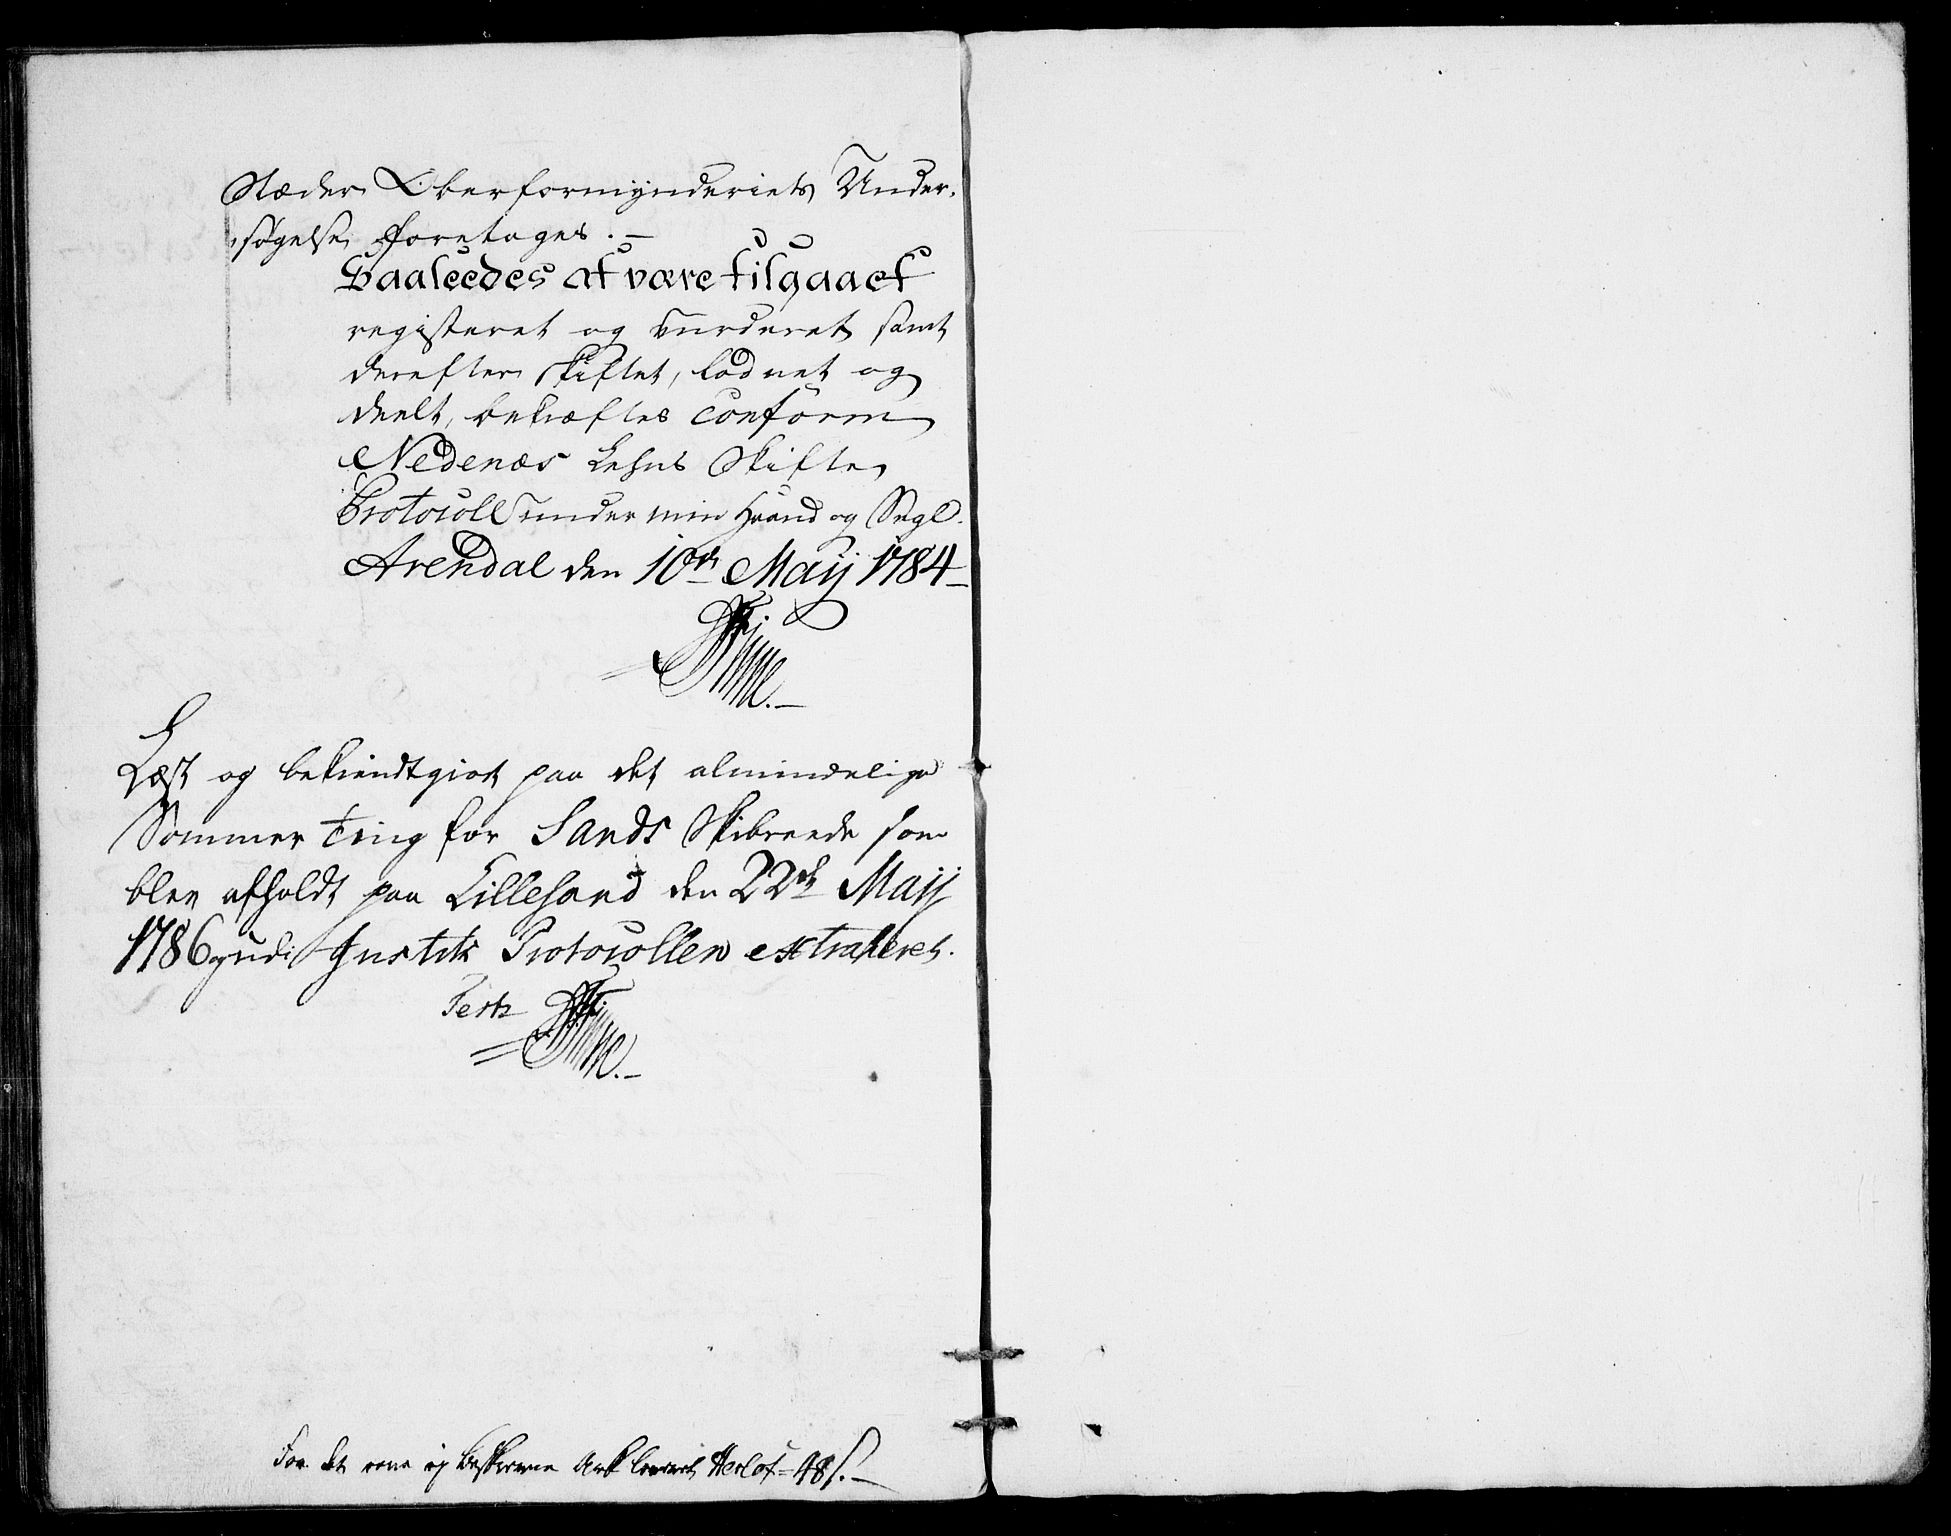 Stæder Oberformynderiets Under-
søgelse foretages. —
Saaleedes at være tilgaaet
registeret og vurderet samt
derefter skiftet, lodnet og
deelt, bekræftes conform
Nedenæs Lehns Skifte
Protocoll under min Haand og Segl.
Arendal den 10de Maij 1784 —
Læst og bekiendtgiort paa det almindelige
Sommer Ting for Sands Skibreede som
blev afholdt paa Lillesand den 22de Maij
1786 og udi Justits Protocollen extraheret.
Test
For det eene og beskrevne Ark 48 s. —